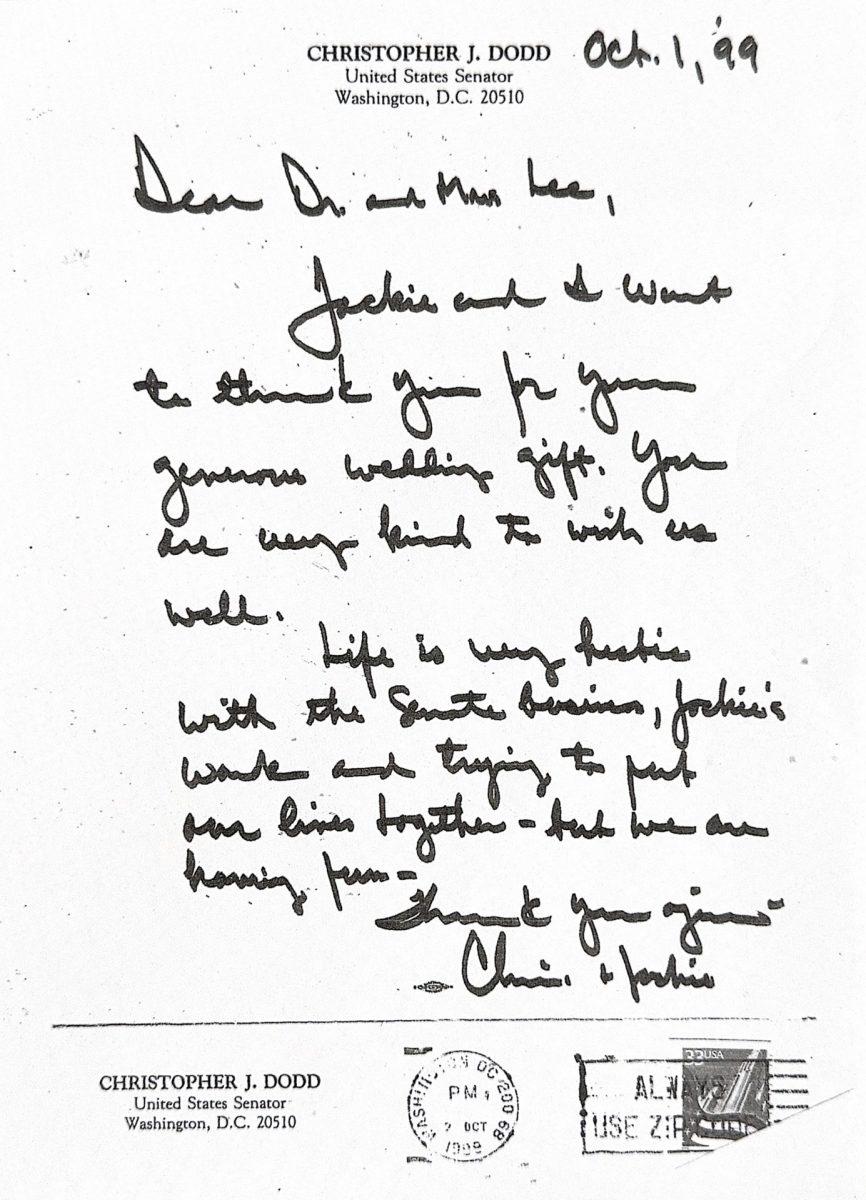 CHRISTOPHER J. DODD
United States Senator
Washington, D.C. 20510
Oct. 1, '99
Dear Dr. and Mrs Lee,
Jackie and I want
to thank you for your
generous wedding gift. You
are very kind to wish us
well.
Life is very hectic
with the Senate business, Jackie's
work and trying to put
our lives together - but we are
having fun -
Thank you again -
Chris. & Jackie
CHRISTOPHER J. DODD
United States Senator
Washington, D.C. 20510
WASHINGTON DC 200 68
PM
2 OCT
1999
33USA
ALWAYS
USE ZIP CODE